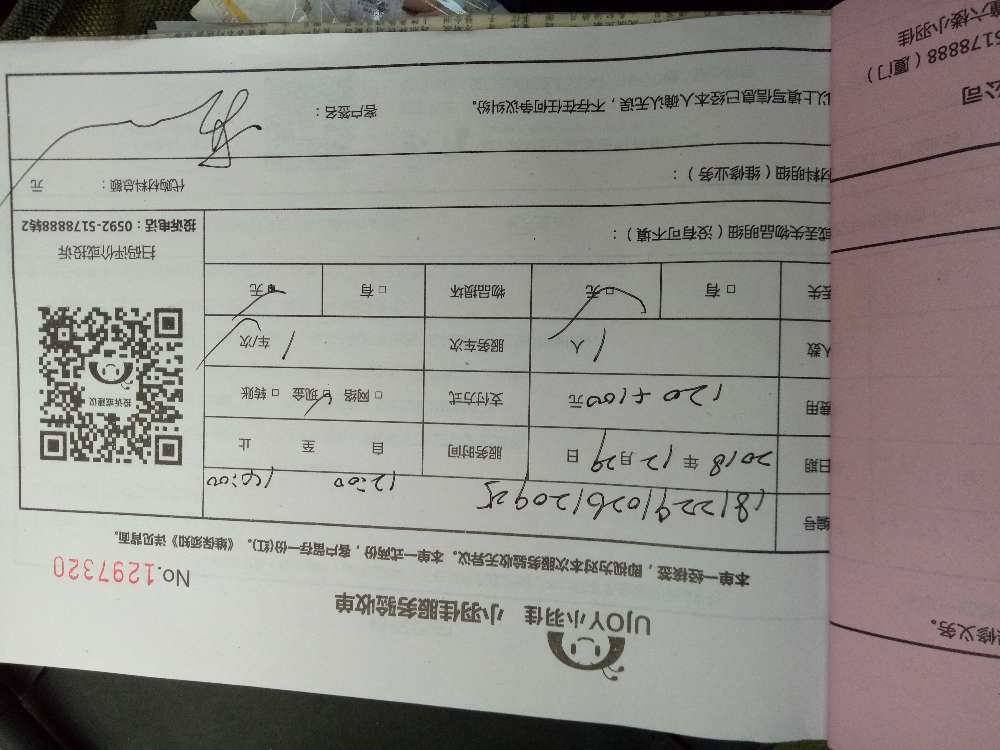 UJOY小羽佳 小羽佳服务验收单
No.1297320
本单一经核签，即视为对本次服务验收无异议。本单一式两份，客户留存一份(红)。《维保须知》详见背面。
编号 181229102612092
12:00 14:00
日期 2018 年 12 月 29 日 服务时间 自 至 止
费用 120+100 元 支付方式 □ 网络 □ 现金 □ 转账
人数 1 人 服务车次 1 车/次
丢失 □ 有 □ 无 物品损坏 □ 有 □ 无
或丢失物品明细（没有可不填）：
材料明细（维修业务）： 代购材料总额： 元
以上填写信息已经本人确认无误，不存在任何争议纠纷。 客户签名：
投诉或建议
扫码评价或投诉
投诉电话：0592-5178888转2
修义务。
公司
5178888（厦门）
六楼小羽佳